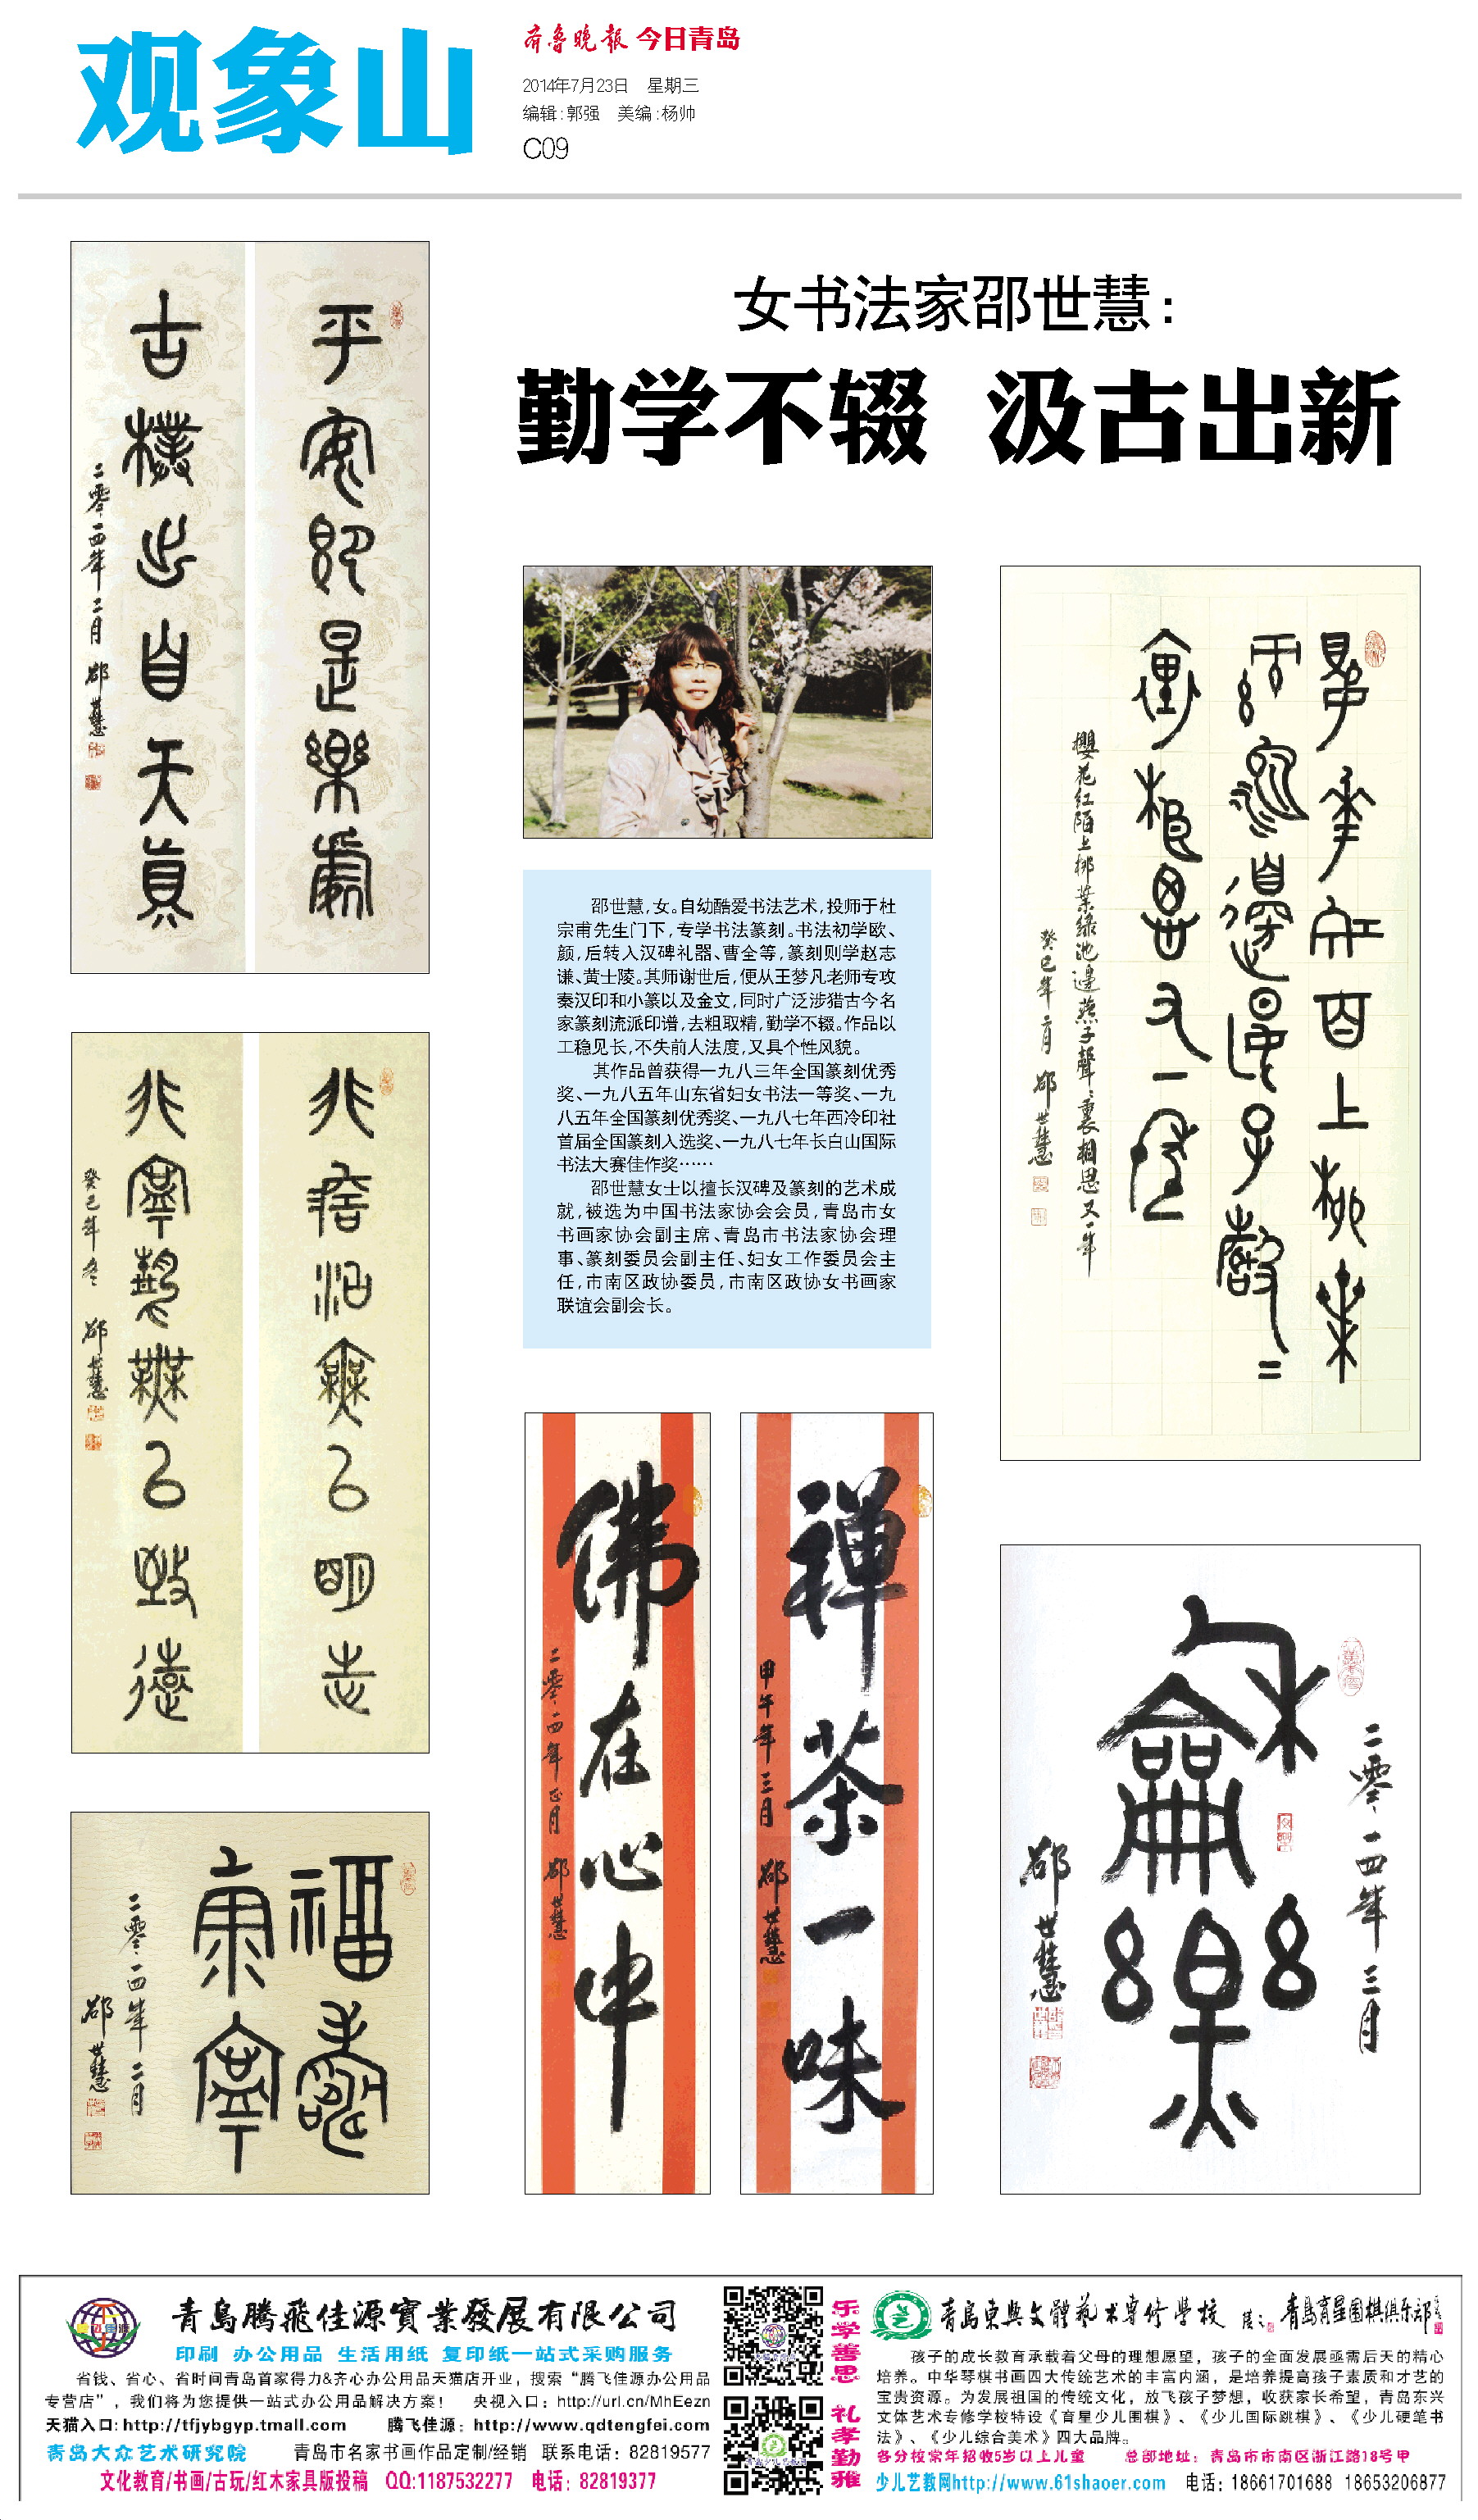 观象山
齐鲁晚报 今日青岛
2014年7月23日 星期三
编辑:郭强 美编:杨帅
C09
女书法家邵世慧:
勤学不辍 汲古出新
平安即是乐处
古朴出自天真
二零一四年二月 邵世慧
樱花红陌上柳叶绿池边燕子声声里相思又一年
癸巳年二月 邵世慧
邵世慧,女。自幼酷爱书法艺术,投师于杜
宗甫先生门下,专学书法篆刻。书法初学欧、
颜,后转入汉碑礼器、曹全等,篆刻则学赵志
谦、黄士陵。其师谢世后,便从王梦凡老师专攻
秦汉印和小篆以及金文,同时广泛涉猎古今名
家篆刻流派印谱,去粗取精,勤学不辍。作品以
工稳见长,不失前人法度,又具个性风貌。
其作品曾获得一九八三年全国篆刻优秀
奖、一九八五年山东省妇女书法一等奖、一九
八五年全国篆刻优秀奖、一九八七年西冷印社
首届全国篆刻入选奖、一九八七年长白山国际
书法大赛佳作奖……
邵世慧女士以擅长汉碑及篆刻的艺术成
就,被选为中国书法家协会会员,青岛市女
书画家协会副主席、青岛市书法家协会理
事、篆刻委员会副主任、妇女工作委员会主
任,市南区政协委员,市南区政协女书画家
联谊会副会长。
非澹泊无以明志
非宁静无以致远
癸巳年冬 邵世慧
福寿
康宁
二零一四年二月
邵世慧
佛在心中
二零一四年正月 邵世慧
禅茶一味
甲午年三月 邵世慧
龢樂
二零一四年三月
邵世慧
青岛腾飛佳源實業發展有限公司
印刷 办公用品 生活用纸 复印纸一站式采购服务
省钱、省心、省时间青岛首家得力&齐心办公用品天猫店开业,搜索“腾飞佳源办公用品
专营店”,我们将为您提供一站式办公用品解决方案! 央视入口:http://url.cn/MhEezn
天猫入口:http://tfjybgyp.tmall.com 腾飞佳源:http://www.qdtengfei.com
青岛大众艺术研究院 青岛市名家书画作品定制/经销 联系电话:82819577
文化教育/书画/古玩/红木家具版投稿 QQ:1187532277 电话:82819377
乐学善思 礼孝勤雅
青岛東興文體藝术專修學校 青岛育星围棋俱乐部
孩子的成长教育承载着父母的理想愿望,孩子的全面发展亟需后天的精心
培养。中华琴棋书画四大传统艺术的丰富内涵,是培养提高孩子素质和才艺的
宝贵资源。为发展祖国的传统文化,放飞孩子梦想,收获家长希望,青岛东兴
文体艺术专修学校特设《育星少儿围棋》、《少儿国际跳棋》、《少儿硬笔书
法》、《少儿综合美术》四大品牌。
各分校常年招收5岁以上儿童 总部地址:青岛市市南区浙江路18号甲
少儿艺教网http://www.61shaoer.com 电话:18661701688 18653206877